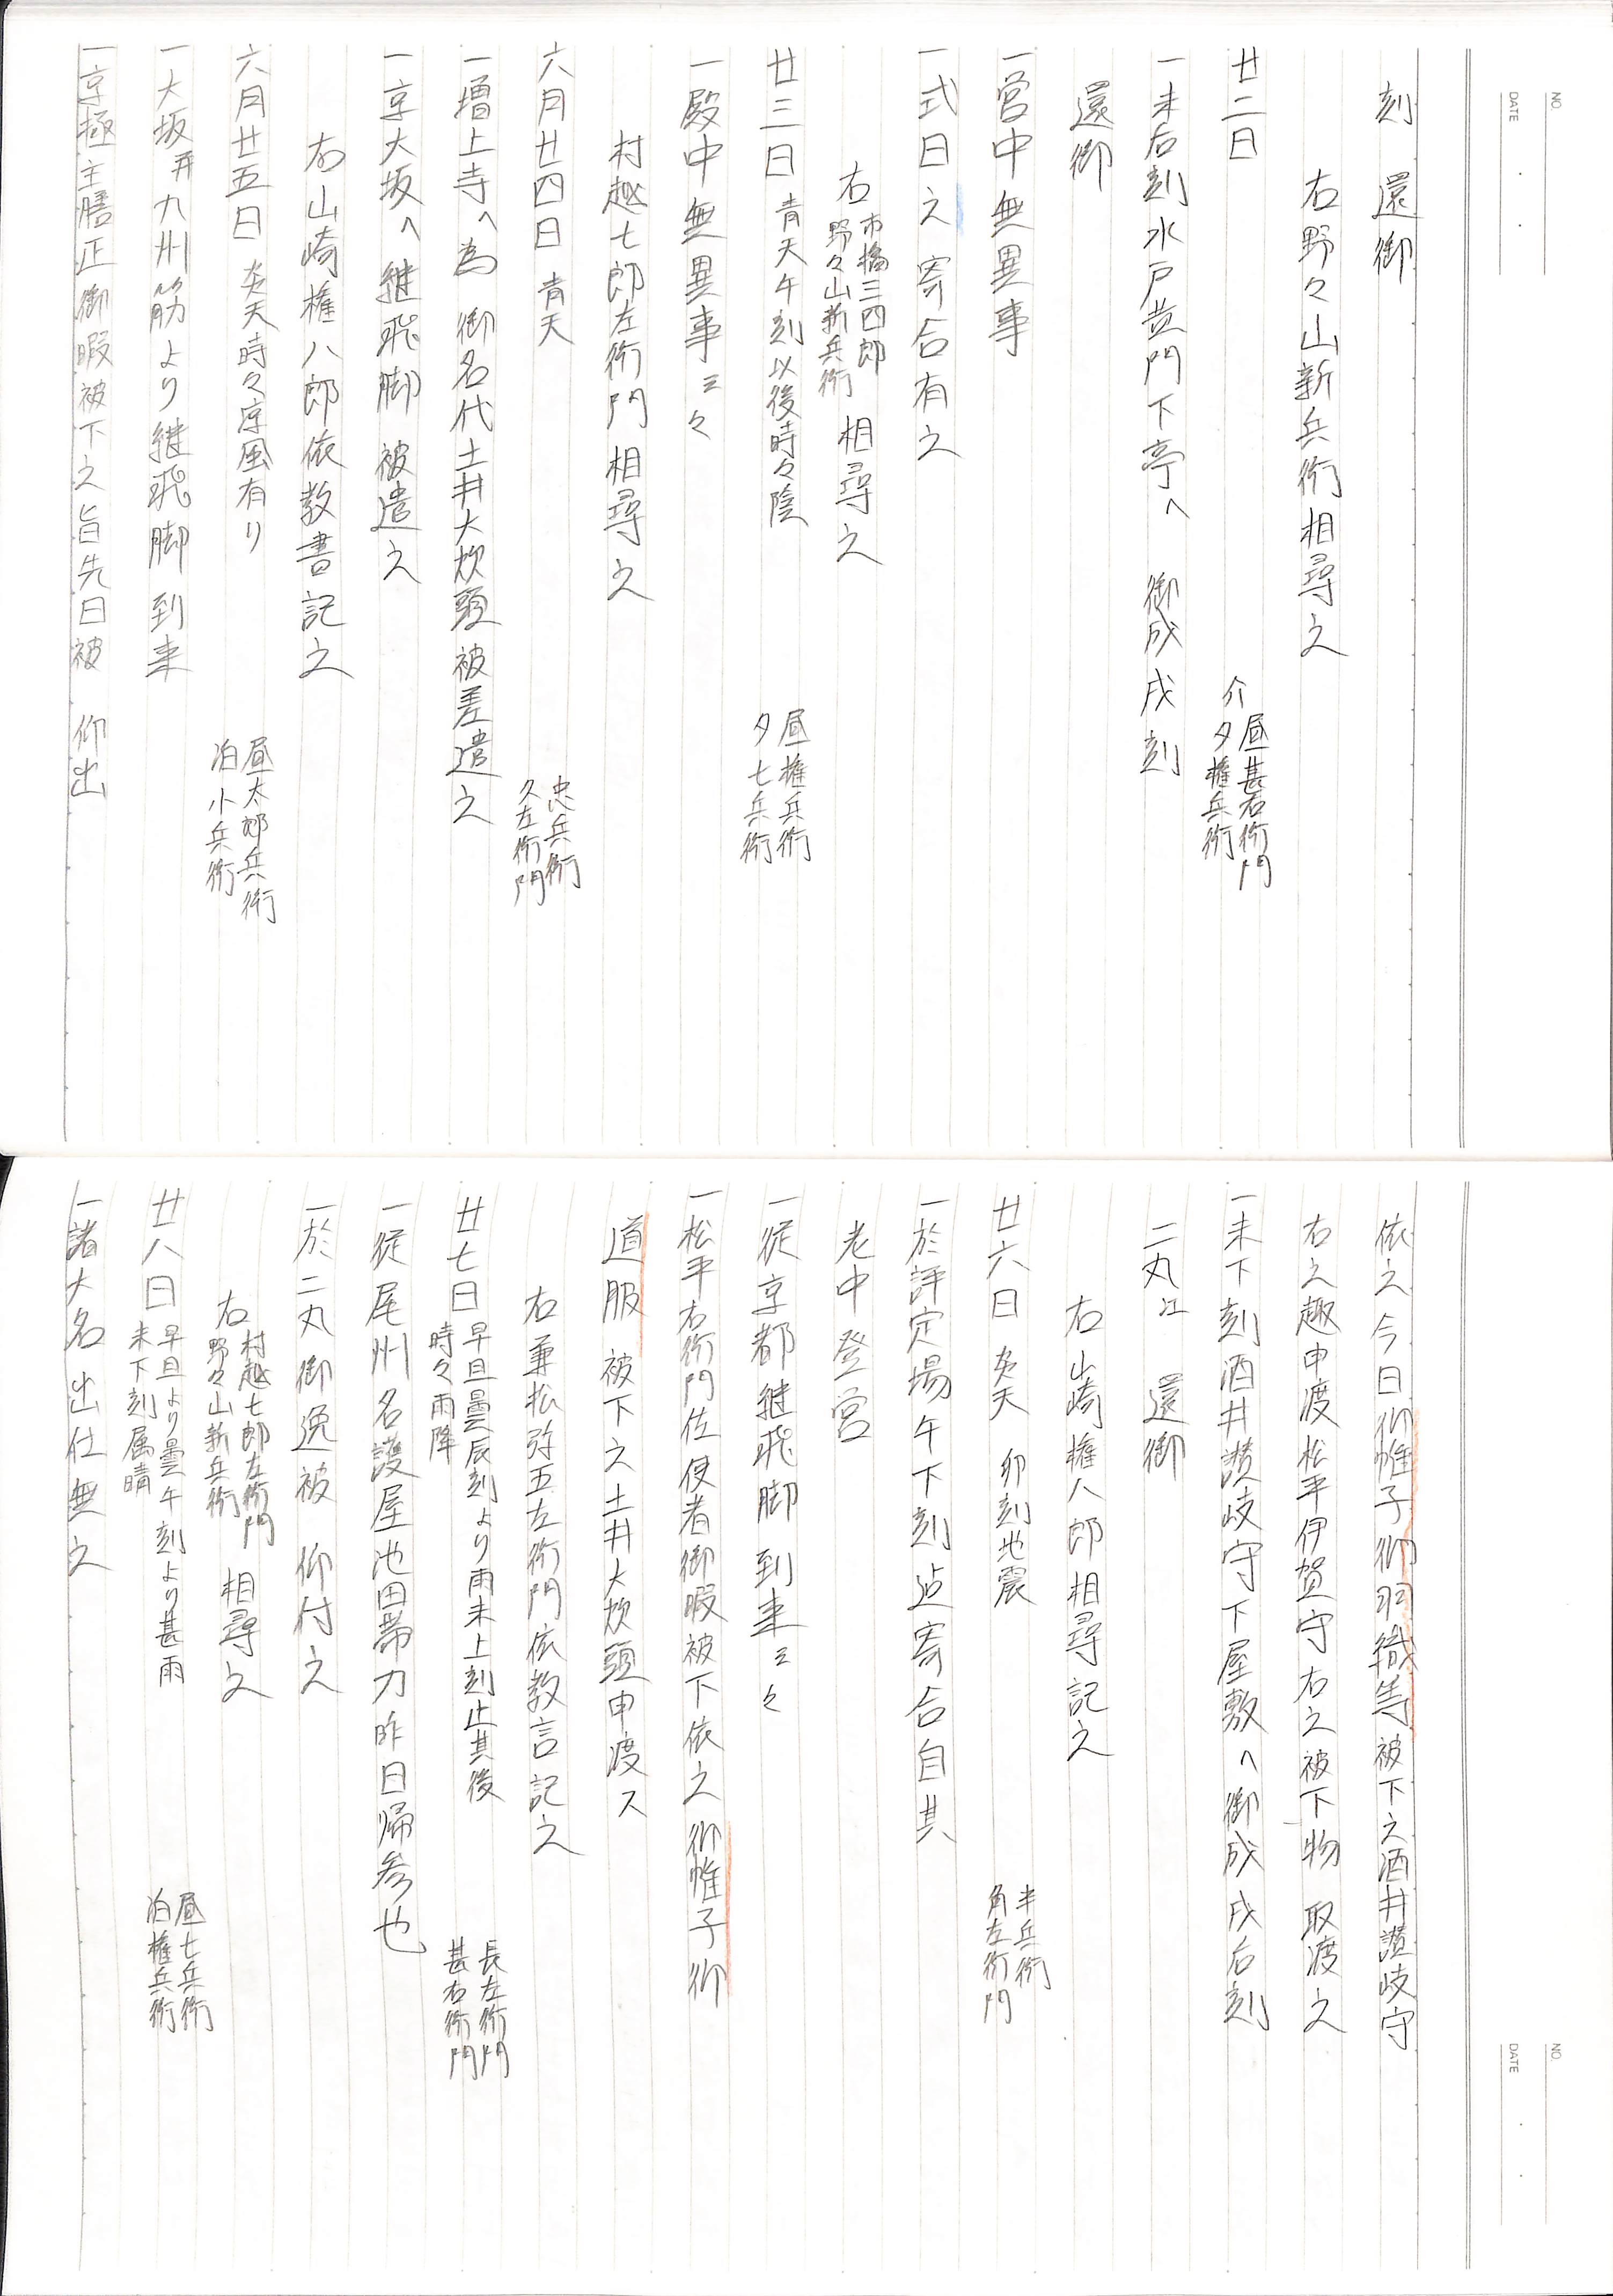 NO
DATE
刻　還御
右野々山新兵衛相尋之
廿二日　介 昼甚右衛門
夕権兵衛
一未后刻水戸黄門下亭へ　御成戌刻
還御
一営中無異事
一式日之寄合有之
右 市橋三四郎
野々山新兵衛 相尋之
廿三日 青天午刻以後時々陰　昼権兵衛
夕七兵衛
一殿中無異事云々
村越七郎左衛門相尋之
六月廿四日 青天　忠兵衛
久左衛門
一増上寺へ為　御名代土井大炊頭被差遣之
一京大坂へ継飛脚被遣之
右山崎権八郎依教書記之
六月廿五日 炎天時々涼風有り　昼太郎兵衛
泊小兵衛
一大坂并九州筋より継飛脚到来
一京極主膳正御暇被下之旨先日被　仰出
NO
DATE
依之今日御帷子御羽織等被下之酒井讃岐守
右之趣申渡松平伊賀守右之被下物取渡之
一未下刻酒井讃岐守下屋敷へ御成戌后刻
二丸江　還御
右山崎権八郎相尋記之
廿六日 炎天　卯刻地震　半兵衛
角左衛門
一於評定場午下刻迠寄合自其
老中登営
一従京都継飛脚到来云々
一松平右衛門佐使者御暇被下依之御帷子御
道服被下之土井大炊頭申渡ス
右兼松弥五左衛門依教言記之
廿七日 早旦曇辰刻より雨未上刻止其後
時々雨降　長左衛門
甚右衛門
一従尾州名護屋池田帯刀昨日帰参也
一於二丸御逸被　仰付之
右 村越七郎左衛門
野々山新兵衛 相尋之
廿八日 早旦より曇午刻より甚雨
未下刻属晴　昼七兵衛
泊権兵衛
一諸大名出仕無之